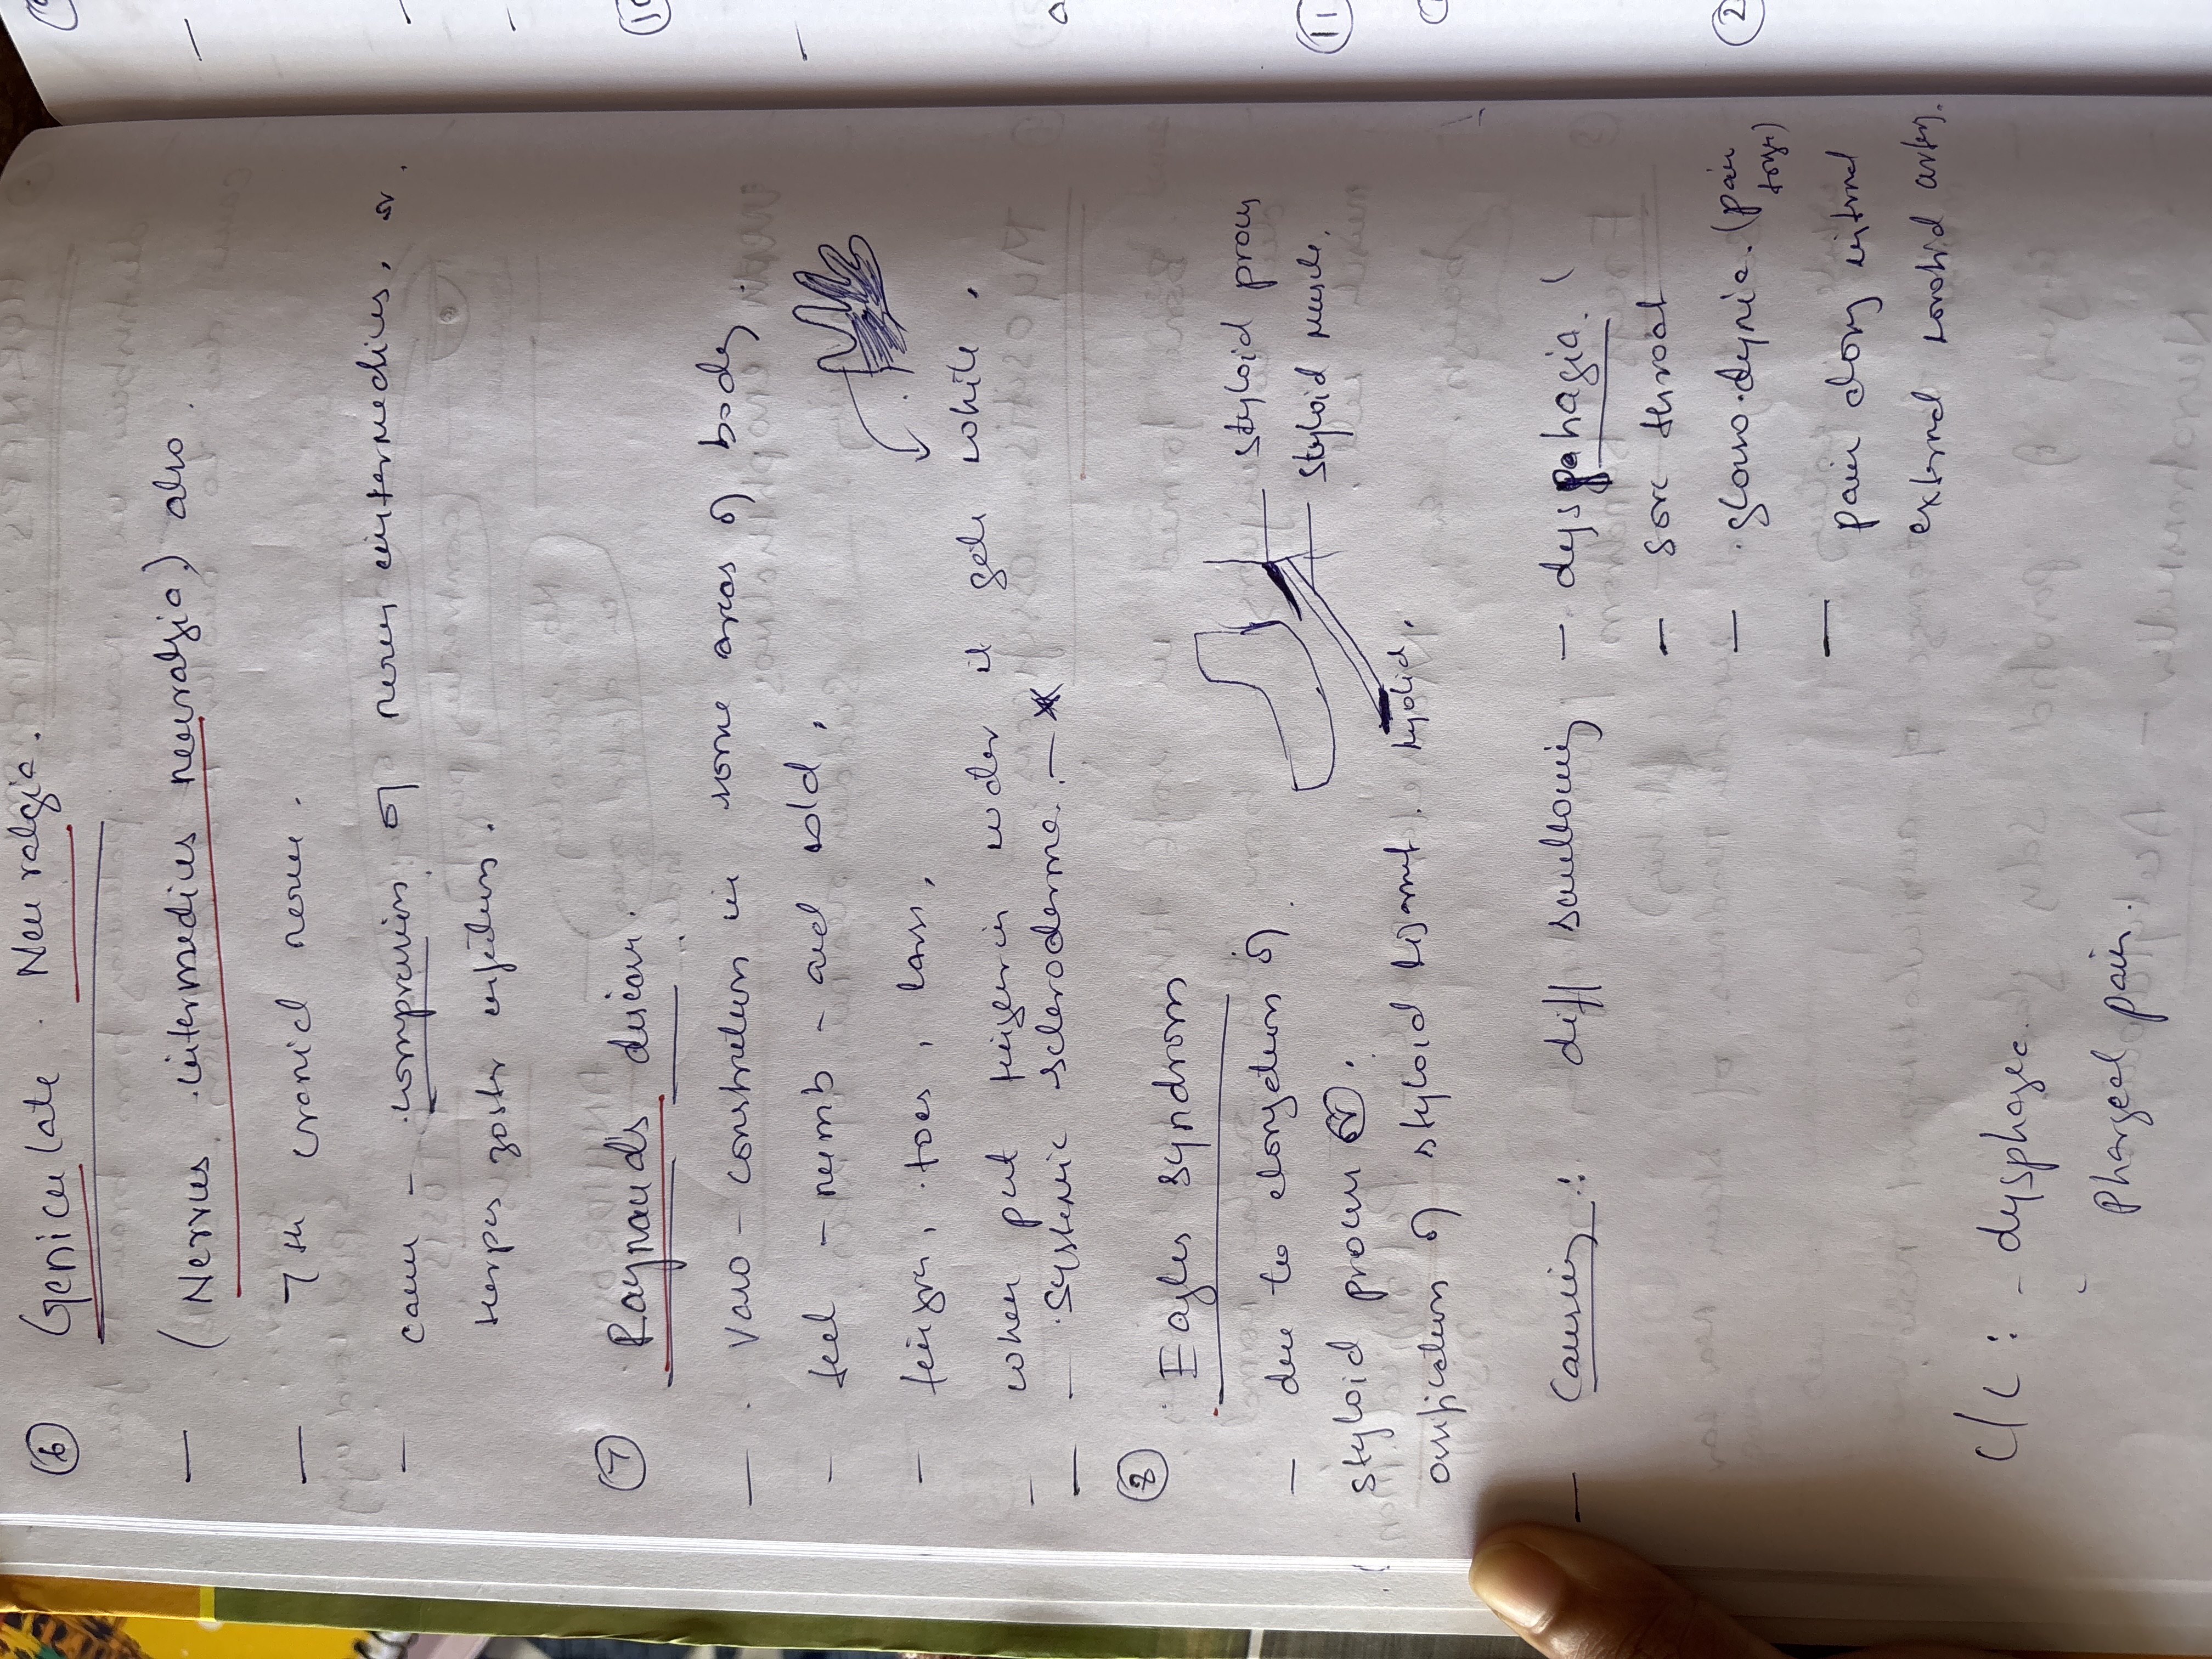 6 Geniculate Neuralgia.
— (Nervus intermedius neuralgia) also
— 7th cranial nerve.
— cause - compression of nervus intermedius. or
Herpes zoster infection.
7 Raynaud's disease.
— Vaso - constriction in some areas of body.
- feel - numb - and cold.
- fingers, toes, ears,
- when put finger in water it gets white.
— — Systemic scleroderma. — *
8
Eagles Syndrom
- due to elongation of
styloid process or.
ossification of styloid ligament.
styloid process
styloid muscle.
hyoid.
— Causing : diff swallowing — dysphagia. (
— sore throat
— glosso.dynia. (pain
tongue)
— pain along internal
external carotid artery.
C/C : - dysphagia.
- Phargeal pain.
6
7
10
11
2